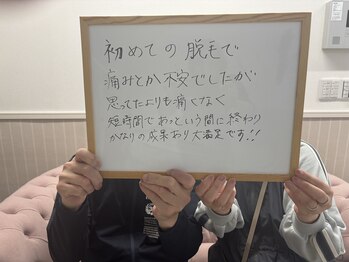 初めての脱毛で
痛みとか不安でしたが
思ってたよりも痛くなく
短時間であっという間に終わり
かなりの成果あり大満足です!!